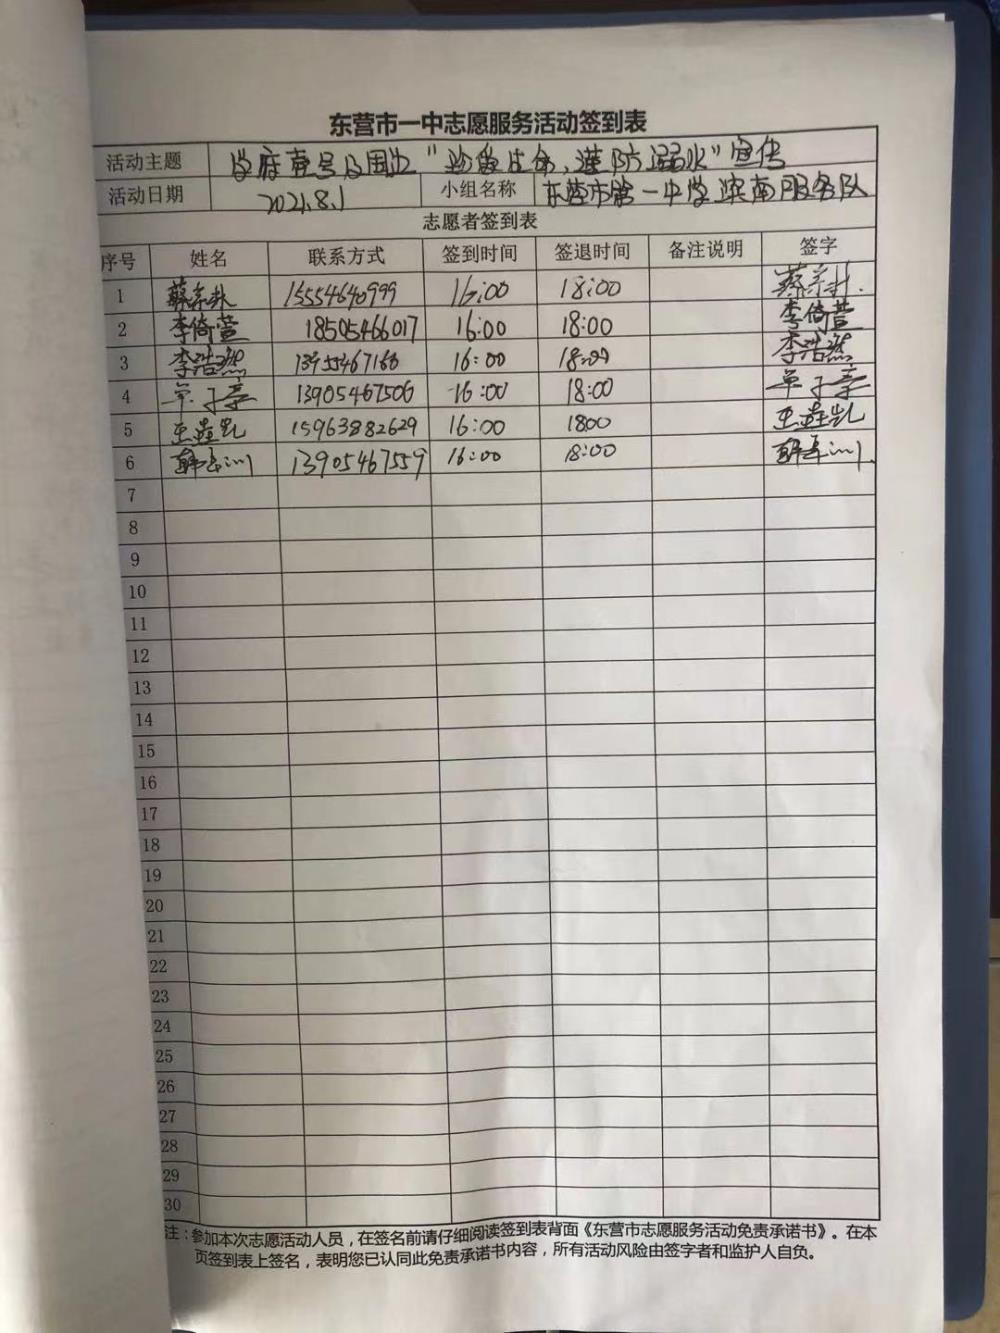 东营市一中志愿服务活动签到表
活动主题 学府壹号及周边"珍爱生命,谨防溺水"宣传
活动日期 2021.8.1 小组名称 东营市第一中学滨南服务队
志愿者签到表
序号 姓名 联系方式 签到时间 签退时间 备注说明 签字
1 15554640999 16:00 18:00
2 李倚萱 18505466017 16:00 18:00 李倚萱
3 李浩然 13955467160 16:00 18:00 李浩然
4 单子豪 13905467506 16:00 18:00 单子豪
5 15963882629 16:00 1800
6 13905467559 16:00 18:00
7
8
9
10
11
12
13
14
15
16
17
18
19
20
21
22
23
24
25
26
27
28
29
30
注:参加本次志愿活动人员,在签名前请仔细阅读签到表背面《东营市志愿服务活动免责承诺书》。在本
页签到表上签名,表明您已认同此免责承诺书内容,所有活动风险由签字者和监护人自负。